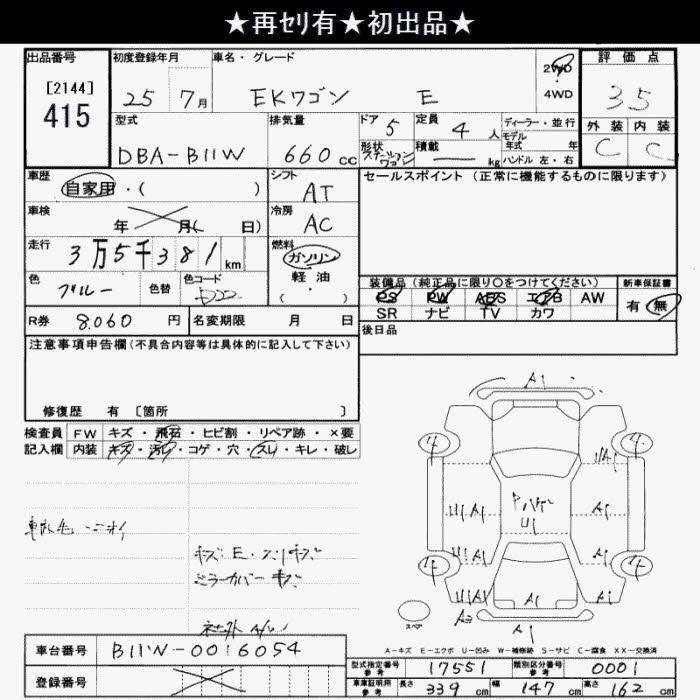 ★再セリ有★初出品★
出品番号
[2144]
415
初度登録年月
25 7月
車名・グレード
EKワゴン E
2WD
4WD
評価点
3.5
外装 内装
C C
型式
DBA-B11W
排気量
660cc
ドア
5
定員
4人
形状
ステーションワゴン
積載
kg
ディーラー・並行
モデル年式 年
ハンドル 左・右
車歴
自家用・( )
シフト
AT
セールスポイント(正常に機能するものに限ります)
車検
年 月( 日)
冷房
AC
走行
3万5千381km
燃料
ガソリン
軽油
( )
色
ブルー
色替
色コード
装備品(純正品に限り○をつけてください)
PS PW ABS エアB AW
SR ナビ TV カワ
新車保証書
有 無
R券 8.060 円
名変期限 月 日
後日品
注意事項申告欄(不具合内容等は具体的に記入して下さい)
修復歴 有 〔箇所 〕
検査員記入欄
FW キズ・飛石・ヒビ割・リペア跡・×要
内装 キズ・汚れ・コゲ・穴・スレ・キレ・破レ
キズ E
ミラーカバー キズ
社外 A/W
A1
4 4
A1
U1 A1
A1
U1 A1
A1
4 4
U1 A1
A1
A1
A2
A1
スペア
A-キズ E-エクボ U-凹み W-補修跡 S-サビ C-腐食 XX-交換済
車台番号
B11W-0016054
登録番号
型式指定番号 参考
17551
類別区分番号 参考
0001
車庫証明用 参考
長さ 339cm
幅 147cm
高さ 162cm